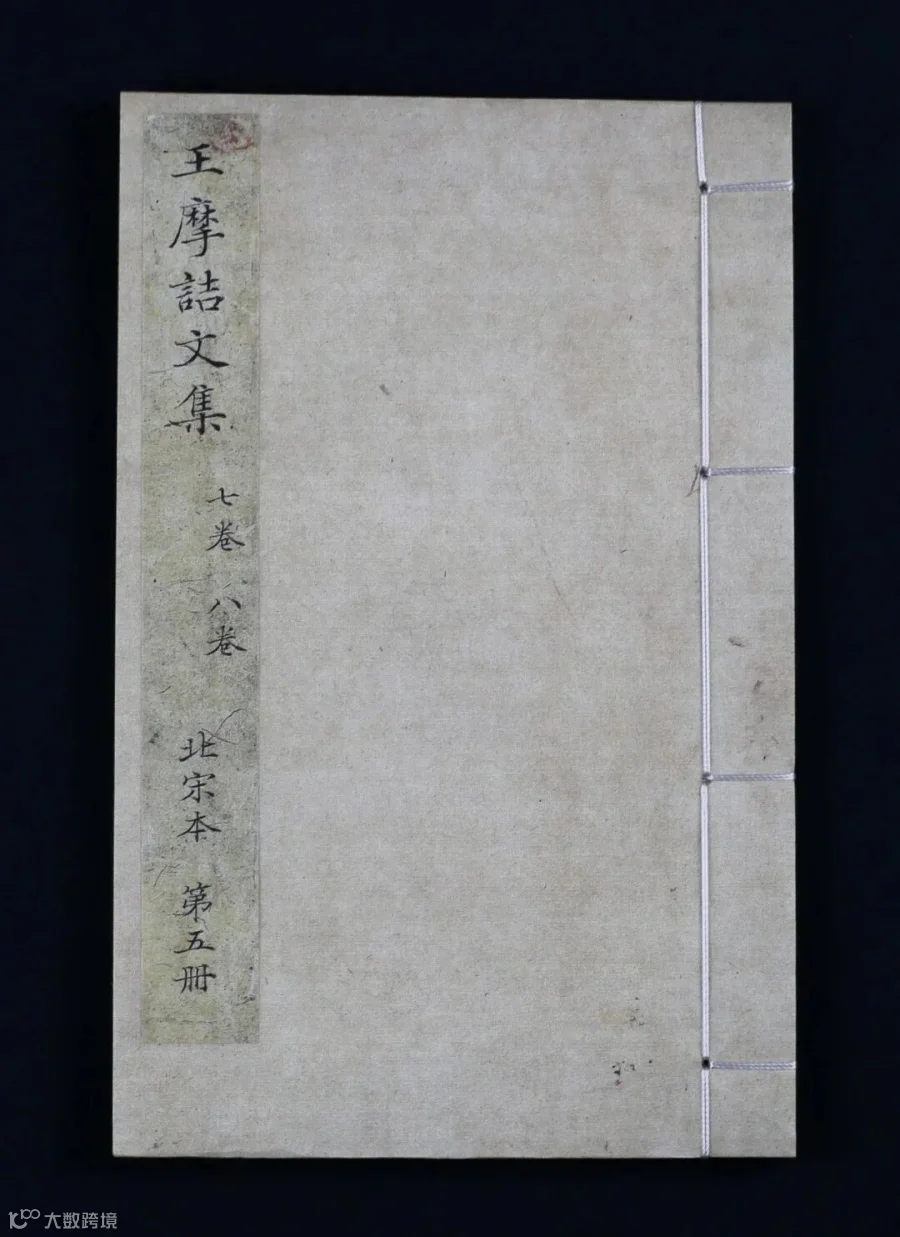 王摩詰文集
七卷 八卷
北宋本 第五册
大数跨境